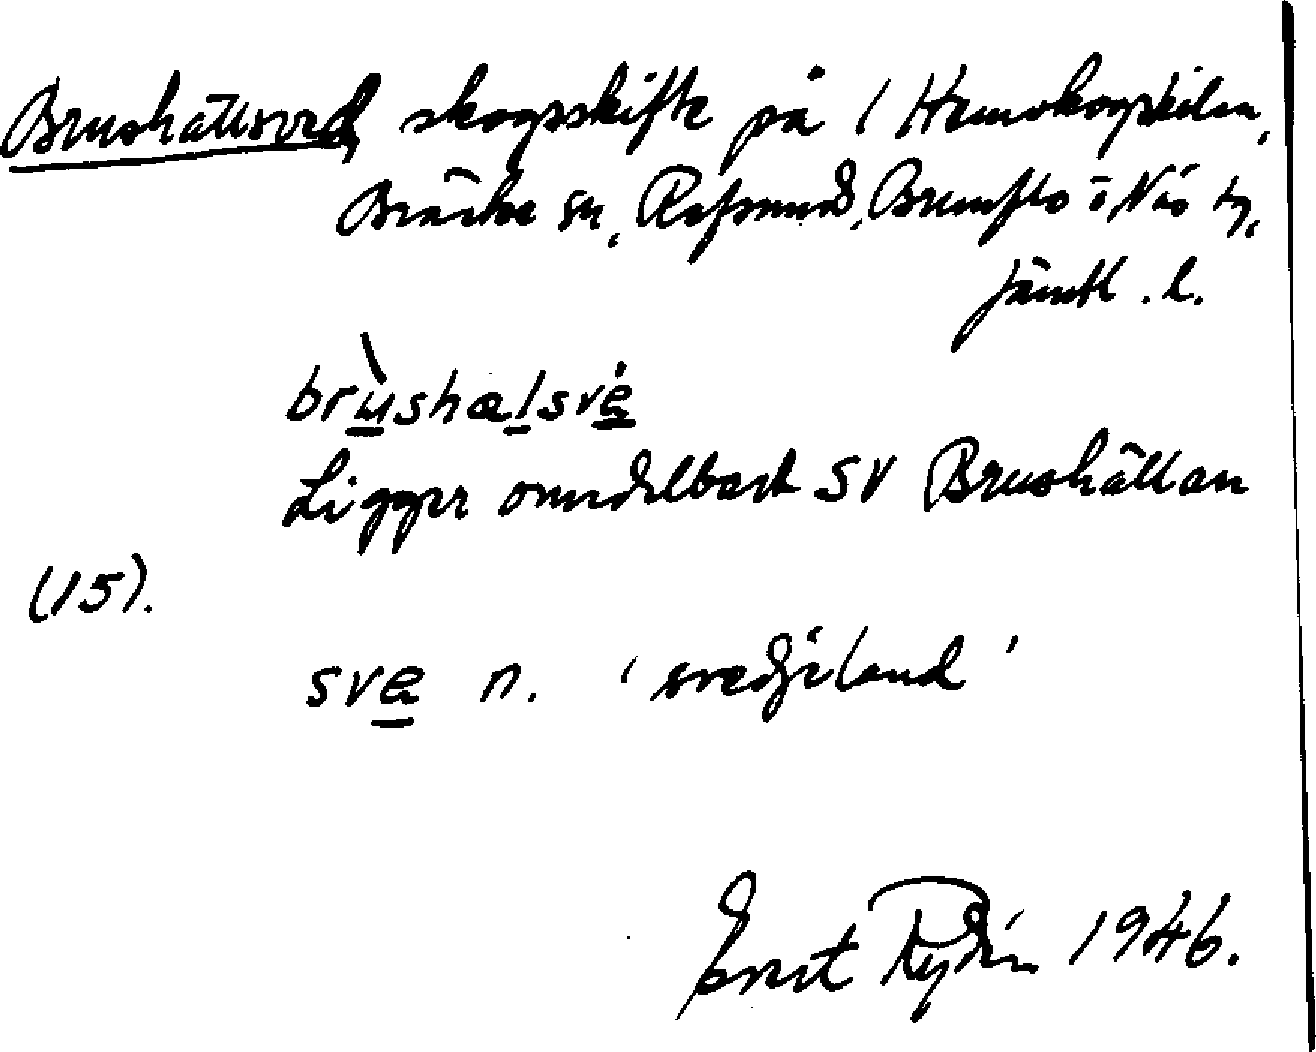 Brushällsved, skogsskifte på 1 Hemskogskilen,
Bräcke sn, Refsund, Brunflo o Näs tg,
Jämtl. l.
brùshælsvè
Ligger omedelbart SV Brushällan
(15).
sve n. 'svedjeland'
Ernst Rydén 1946.